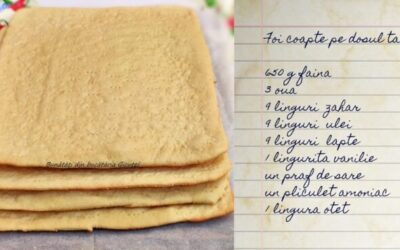 Foi coapte pe dosul ta
650 g faina
3 oua
9 linguri zahar
9 linguri ulei
9 linguri lapte
1 lingurita vanilie
un praf de sare
un pliculet amoniac
1 lingura otet
Bunătăți din bucătăria Gicuței